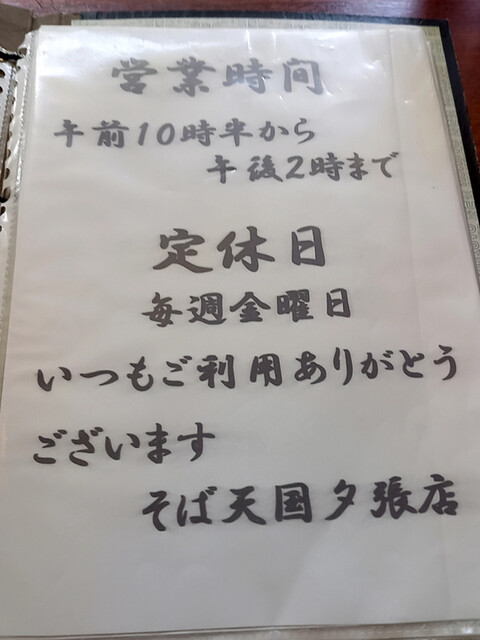 営業時間
午前10時半から
午後2時まで
定休日
毎週金曜日
いつもご利用ありがとう
ございます
そば天国夕張店